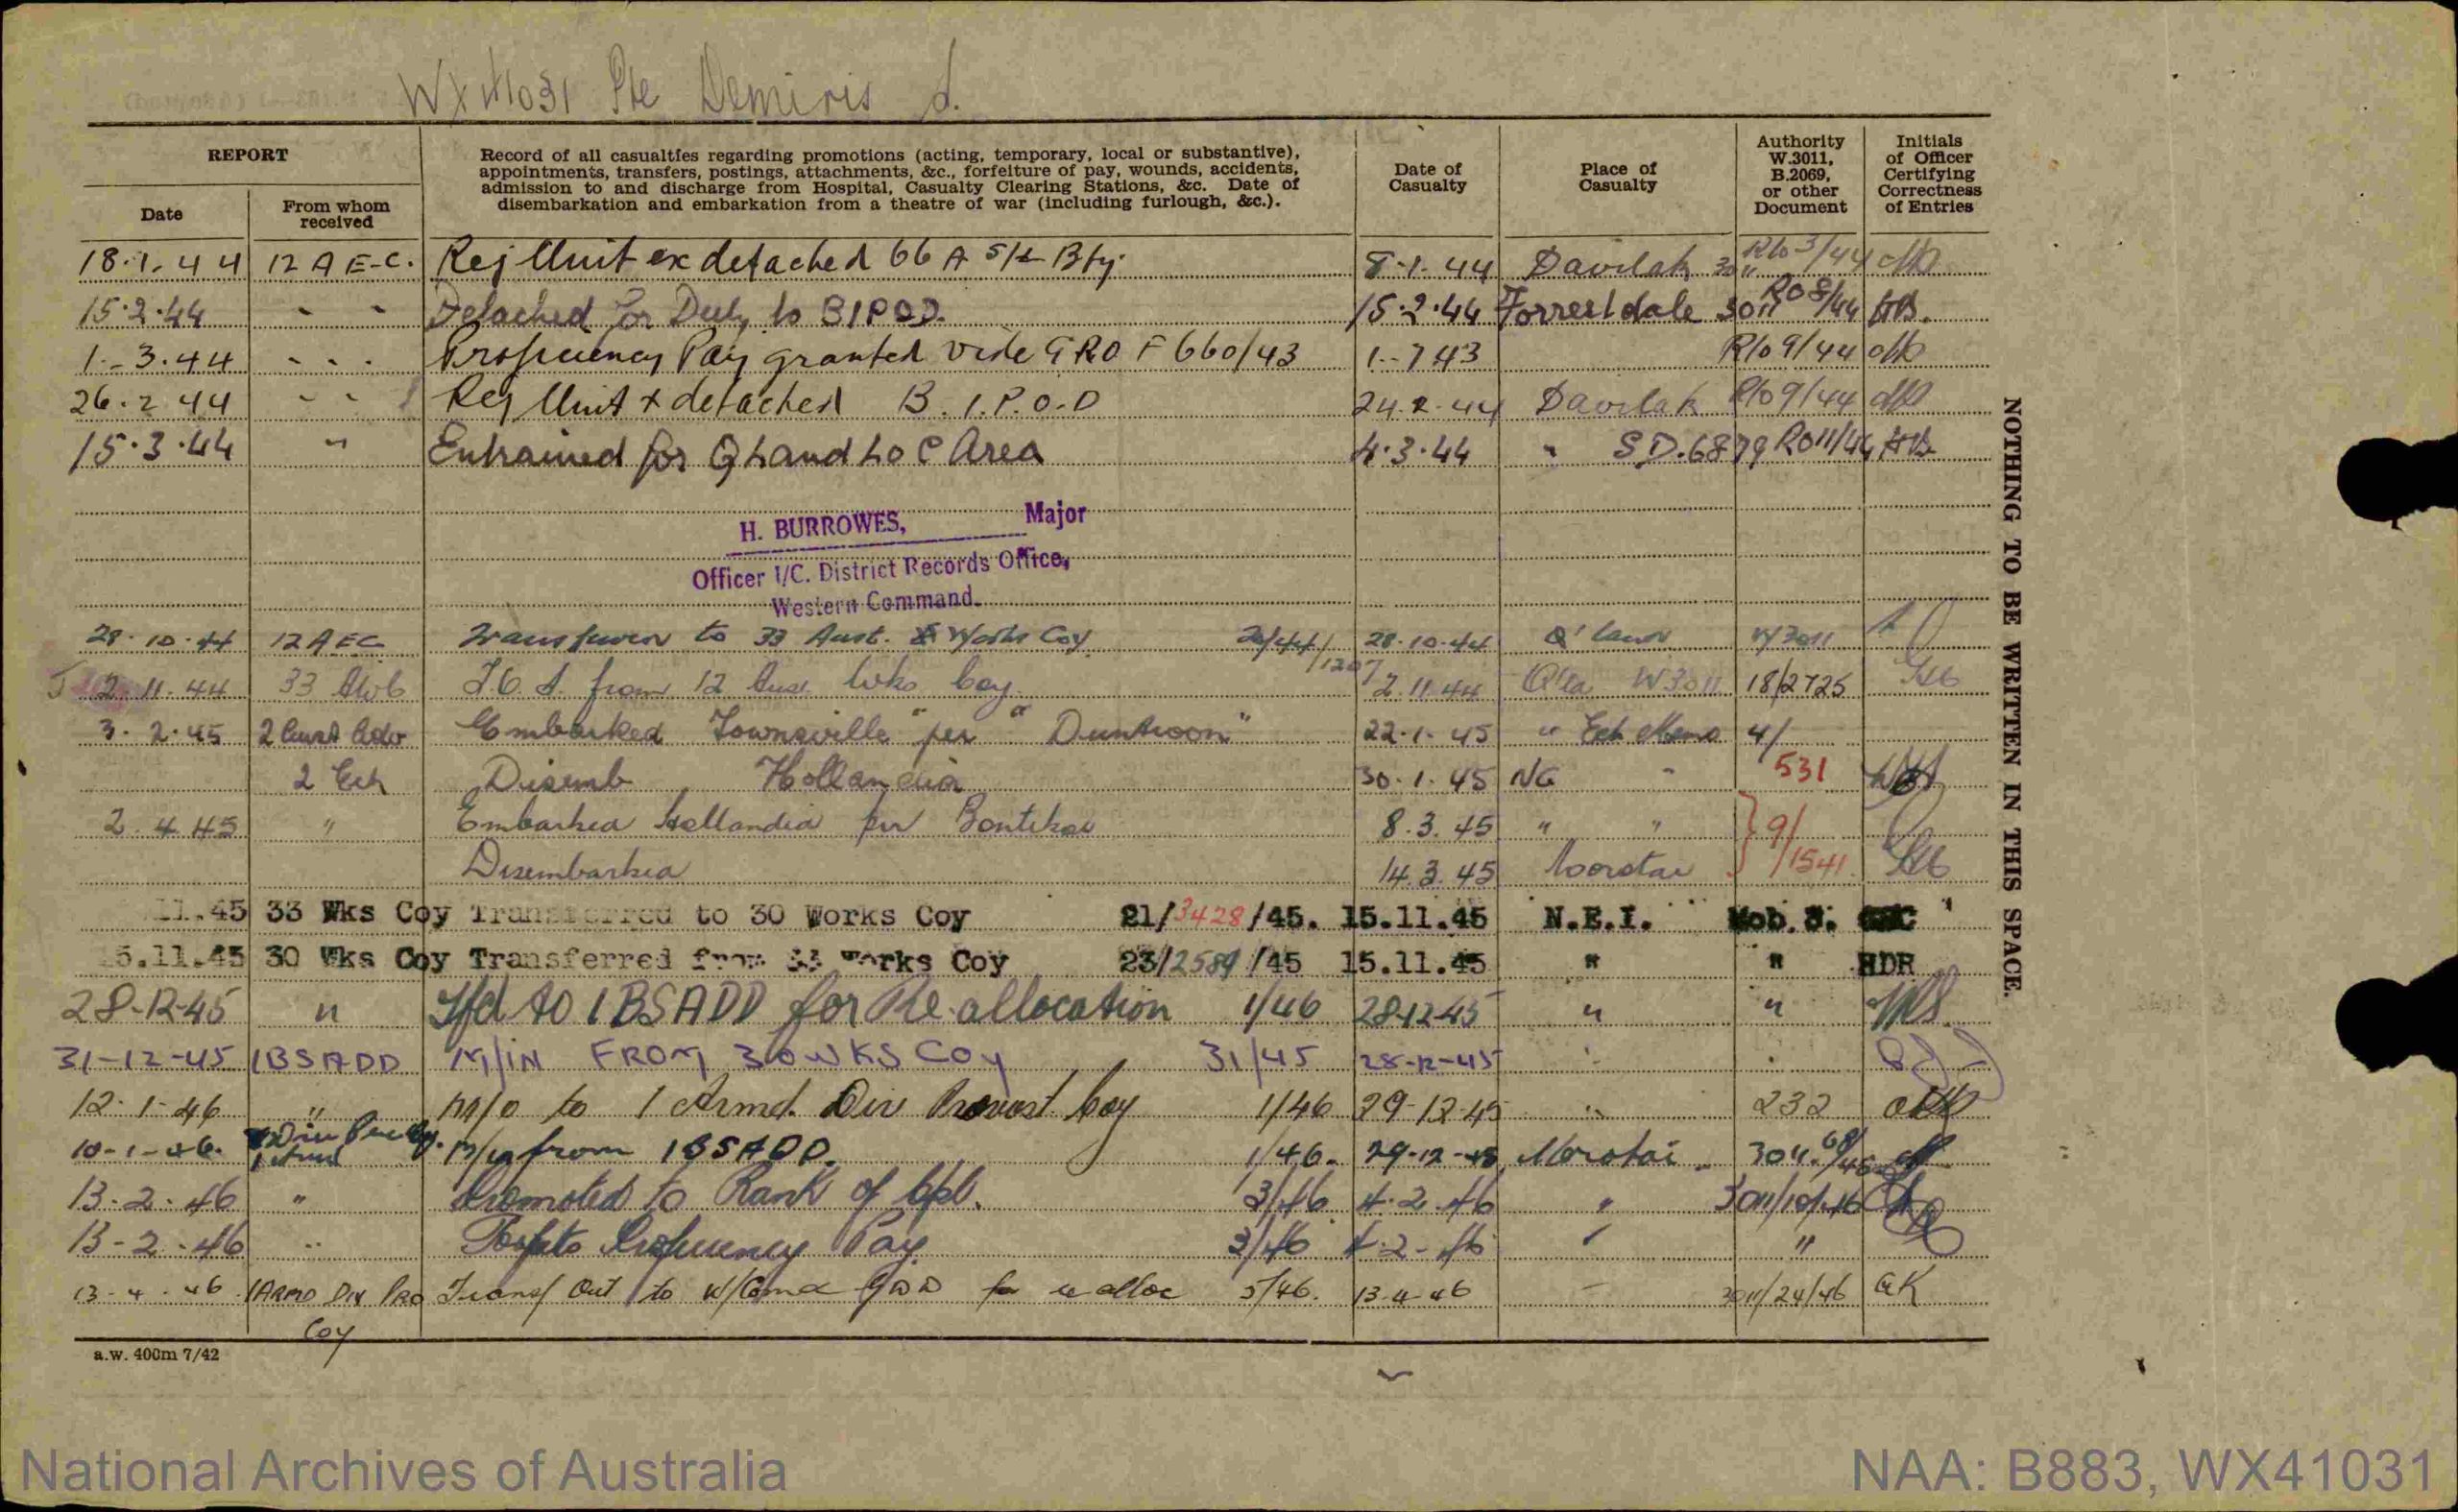 WX41031 Pte Demiris J.
REPORT
Record of all casualties regarding promotions (acting, temporary, local or substantive),
appointments, transfers, postings, attachments, &c., forfeiture of pay, wounds, accidents,
admission to and discharge from Hospital, Casualty Clearing Stations, &c. Date of
disembarkation and embarkation from a theatre of war (including furlough, &c.).
Date of
Casualty
Place of
Casualty
Authority
W.3011,
B.2069,
or other
Document
Initials
of Officer
Certifying
Correctness
of Entries
Date
From whom
received
18.1.44 12 A E.C. Rej Unit ex detached 66 A S/L Bty. 8-1-44 Davilak R/o 3/44
15.2.44 " " Detached for Duty to BIPOD. 15.2.44 Forrestdale 3011 RO 8/44 HB.
1.-3.44 " " " Proficiency Pay granted vide GRO F 660/43 1.-7 43 R/o 9/44
26.2 44 " " Rej Unit x detached B.I.P.O.D 24.2.44 Davilak R/o 9/44
15.3.44 " Entrained for Q Land L o C Area 4.3.44 " S.D.6879 RO11/44 HB
H. BURROWES, Major
Officer I/C. District Records Office,
Western Command.
28.10.44 12 A E C to 33 Aust. Works Coy 28.10.44 Q'land W3011
2.11.44 33 from 12 Aust Wks Coy. 2.11.44 Q'ld W3011 18/2725
3.2.45 2 Aust Adv Embarked Townsville per "Duntroon" 22.1.45 " Ech Memo 4/
2 Ech Disemb Hollandia 30.1.45 NG " 531
2.4.45 " Embarked Hollandia per Bontekoe 8.3.45 " " 9/
Disembarked 14.3.45 Morotai 1541
11.45 33 Wks Coy Transferred to 30 Works Coy 21/3428/45. 15.11.45 N.E.I. Mob. 3.
15.11.45 30 Wks Coy Transferred from 33 Works Coy 23/2589/45 15.11.45 " " HDR
28-12-45 " Tfd to 1 BSADD for Re.allocation 1/46 28-12-45 " "
31-12-45 1BSADD M/IN FROM 30 WKS COY 31/45 28-12-45
12-1-46 " M/O to 1 Armd. Div Provost Coy 1/46 29-12-45 " 232
10-1-46. M/in from 1BSADD. 1/46. 29-12-45 Morotai
13.2.46 " Promoted to Rank of Cpl. 3/46 4.2.46 "
13-2-46 " Forfeits Proficiency Pay 3/46 4-2-46 "
13-4-46 1ARMD DIV PRO Transf Out to W/Comd GDD for re alloc 5/46. 13-4-46 3011/24/46 GK
Coy
a.w. 400m 7/42
NOTHING TO BE WRITTEN IN THIS SPACE.
National Archives of Australia
NAA: B883, WX41031